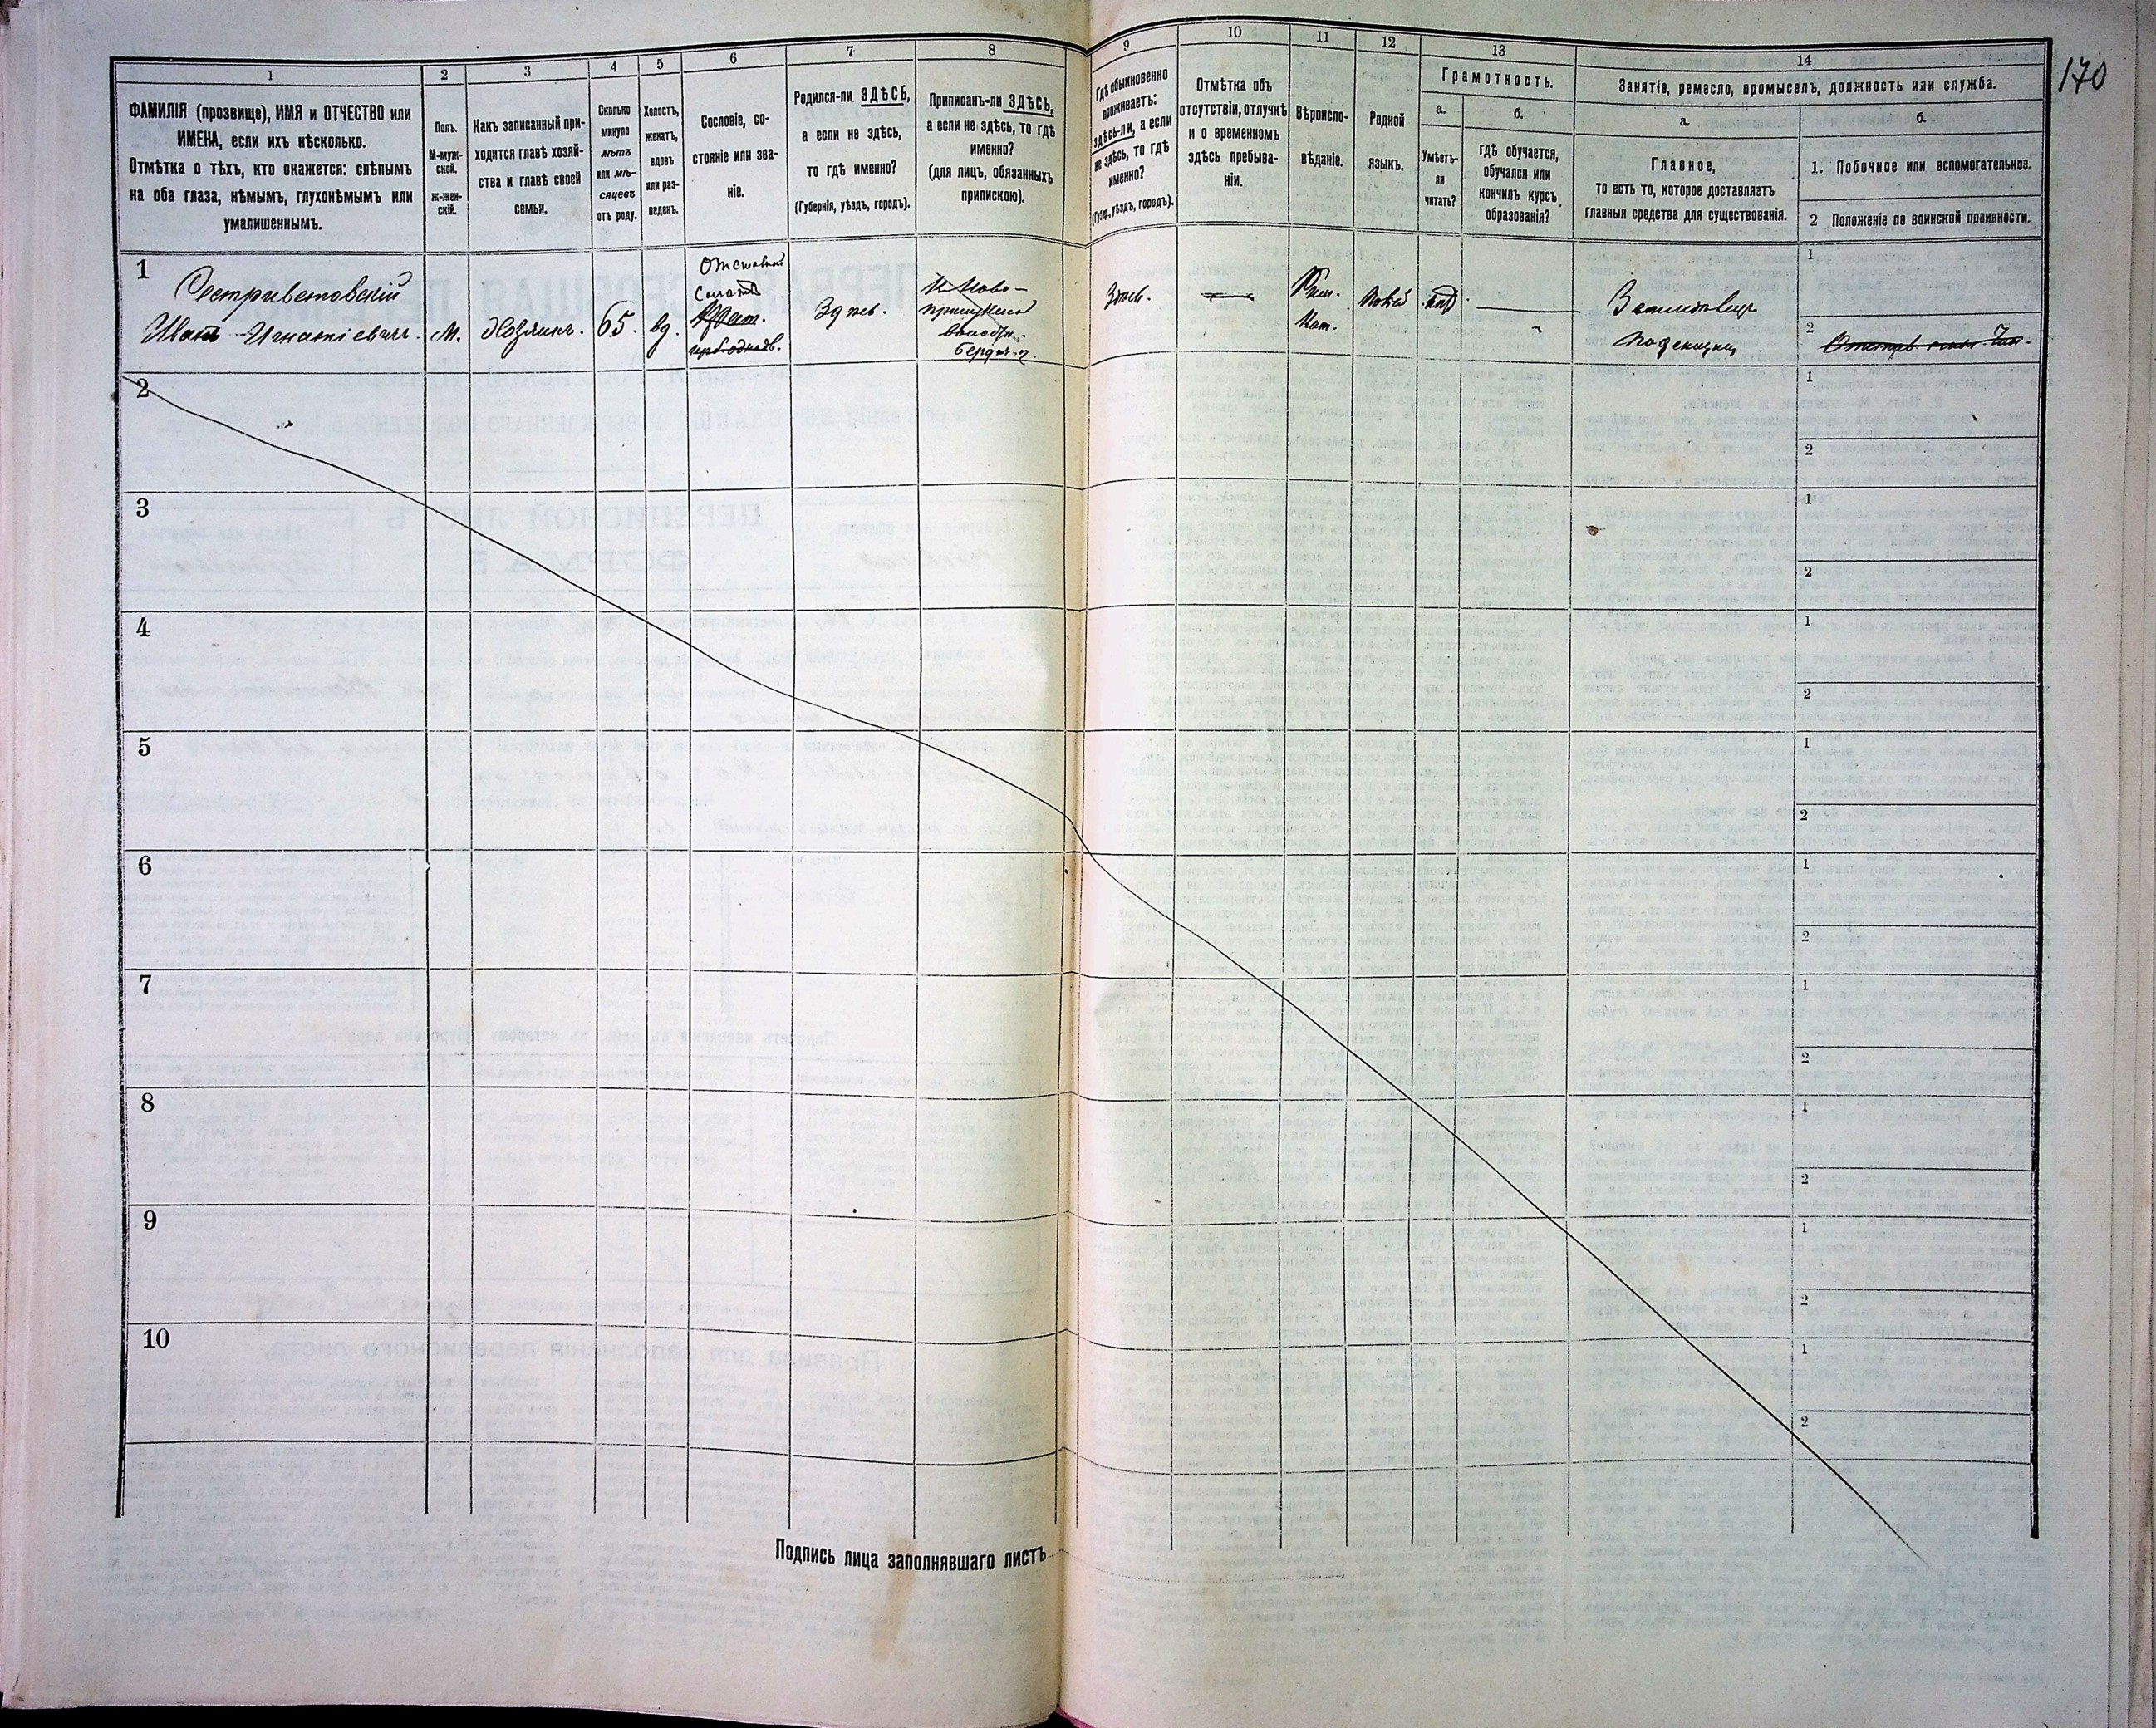 170
1
2
3
4
5
6
7
8
9
10
11
12
13
14
ФАМИЛІЯ (прозвище), ИМЯ и ОТЧЕСТВО или
ИМЕНА, если ихъ нѣсколько.
Отмѣтка о тѣхъ, кто окажется: слѣпымъ
на оба глаза, нѣмымъ, глухонѣмымъ или
умалишеннымъ.
Полъ.
М-муж-
ской.
ж-жен-
скій.
Какъ записанный при-
ходится главѣ хозяй-
ства и главѣ своей
семьи.
Сколько
минуло
лѣтъ
или мѣ-
сяцевъ
отъ роду.
Холостъ,
женатъ,
вдовъ
или раз-
веденъ.
Сословіе, со-
стояніе или зва-
ніе.
Родился-ли ЗДѢСЬ,
а если не здѣсь,
то гдѣ именно?
(Губернія, уѣздъ, городъ).
Приписанъ-ли ЗДѢСЬ,
а если не здѣсь, то гдѣ
именно?
(для лицъ, обязанныхъ
припискою).
Гдѣ обыкновенно
проживаетъ:
здѣсь-ли, а если
не здѣсь, то гдѣ
именно?
(Губер., уѣздъ, городъ).
Отмѣтка объ
отсутствіи, отлучкѣ
и о временномъ
здѣсь пребыва-
ніи.
Вѣроиспо-
вѣданіе.
Родной
языкъ.
Грамотность.
а.
б.
Умѣетъ-
ли
читать?
гдѣ обучается,
обучался или
кончилъ курсъ
образованія?
Занятіе, ремесло, промыселъ, должность или служба.
а.
б.
Главное,
то есть то, которое доставляетъ
главныя средства для существованія.
1. Побочное или вспомогательное.
2 Положеніе по воинской повинности.
1
Иванъ Игнатіевичъ.
М.
Хозяинъ.
65.
вд.
Отставной
Солдатъ
Здѣсь.
Здѣсь.
Рим.
Кат.
1
2
2
1
2
3
1
2
4
1
2
5
1
2
6
1
2
7
1
2
8
1
2
9
1
2
10
1
2
Подпись лица заполнявшаго листъ